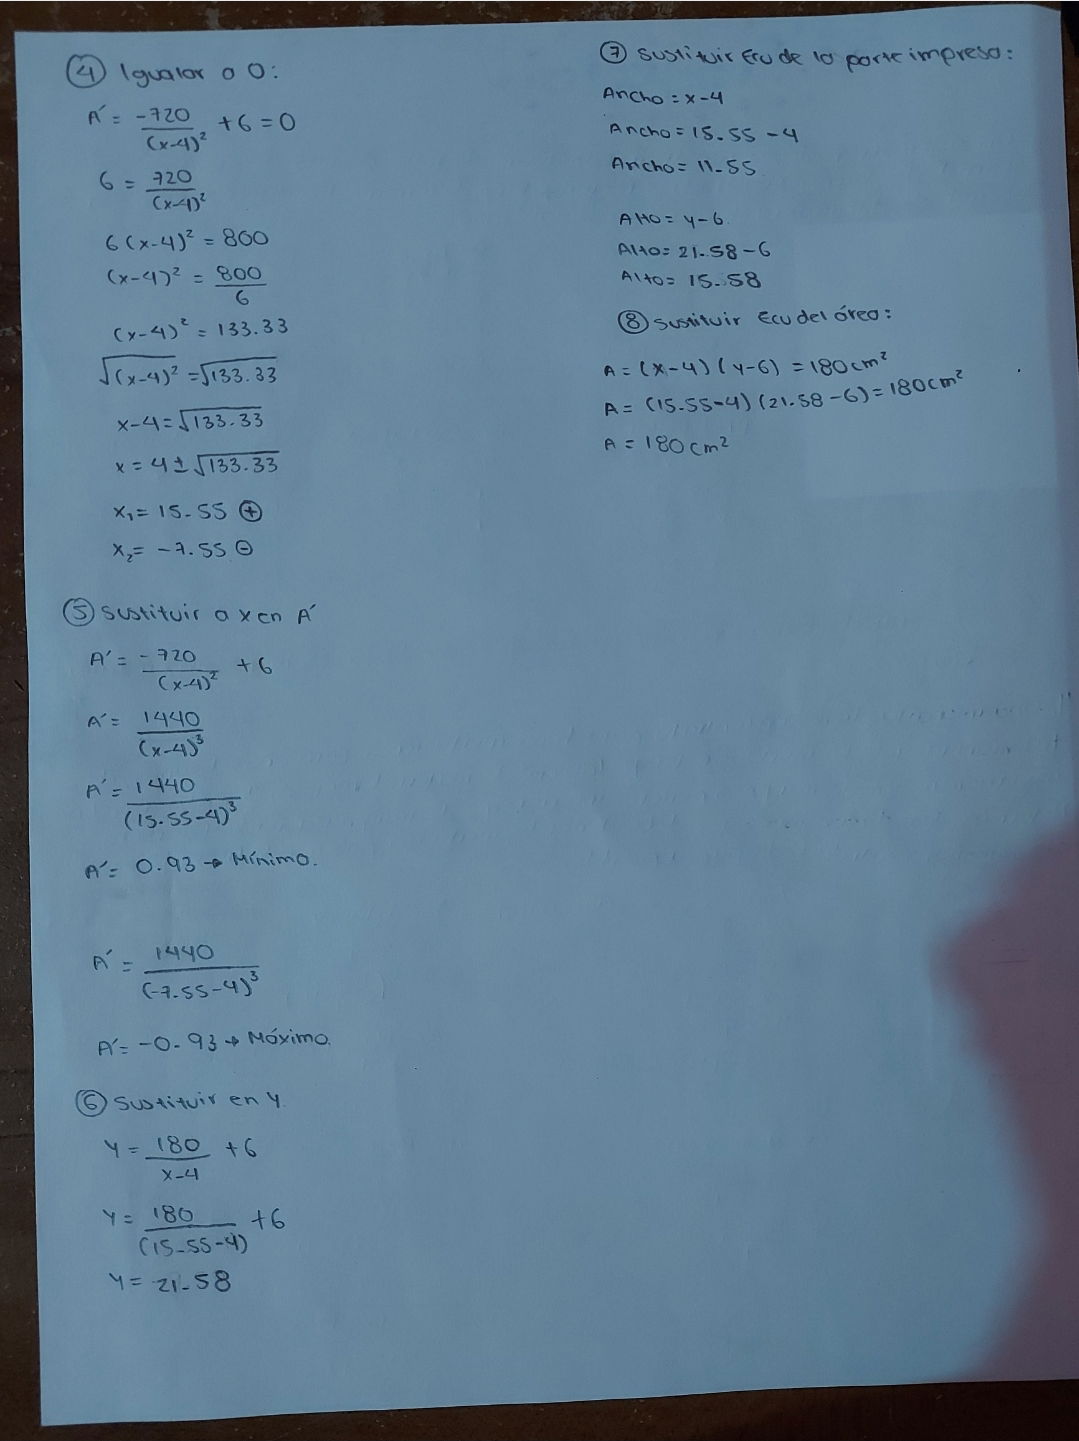 ④ Igualar a 0:
A´ = -720/(x-4)² + 6 = 0
6 = 720/(x-4)²
6(x-4)² = 800
(x-4)² = 800/6
(x-4)² = 133.33
√(x-4)² = √133.33
x-4 = √133.33
x = 4 ± √133.33
x₁ = 15.55 ⊕
x₂ = -7.55 ⊖
⑤ Sustituir a x en A´
A´ = -720/(x-4)² + 6
A´´ = 1440/(x-4)³
A´´ = 1440/(15.55-4)³
A´´ = 0.93 → Mínimo.
A´´ = 1440/(-7.55-4)³
A´´ = -0.93 → Máximo.
⑥ Sustituir en y.
y = 180/x-4 + 6
y = 180/(15.55-4) + 6
y = 21.58
⑦ Sustituir Ecu de la parte impresa:
Ancho = x-4
Ancho = 15.55 - 4
Ancho = 11.55
Alto = y-6.
Alto = 21.58-6
Alto = 15.58
⑧ Sustituir Ecu del área:
A = (x-4)(y-6) = 180 cm²
A = (15.55-4)(21.58-6) = 180 cm²
A = 180 cm²